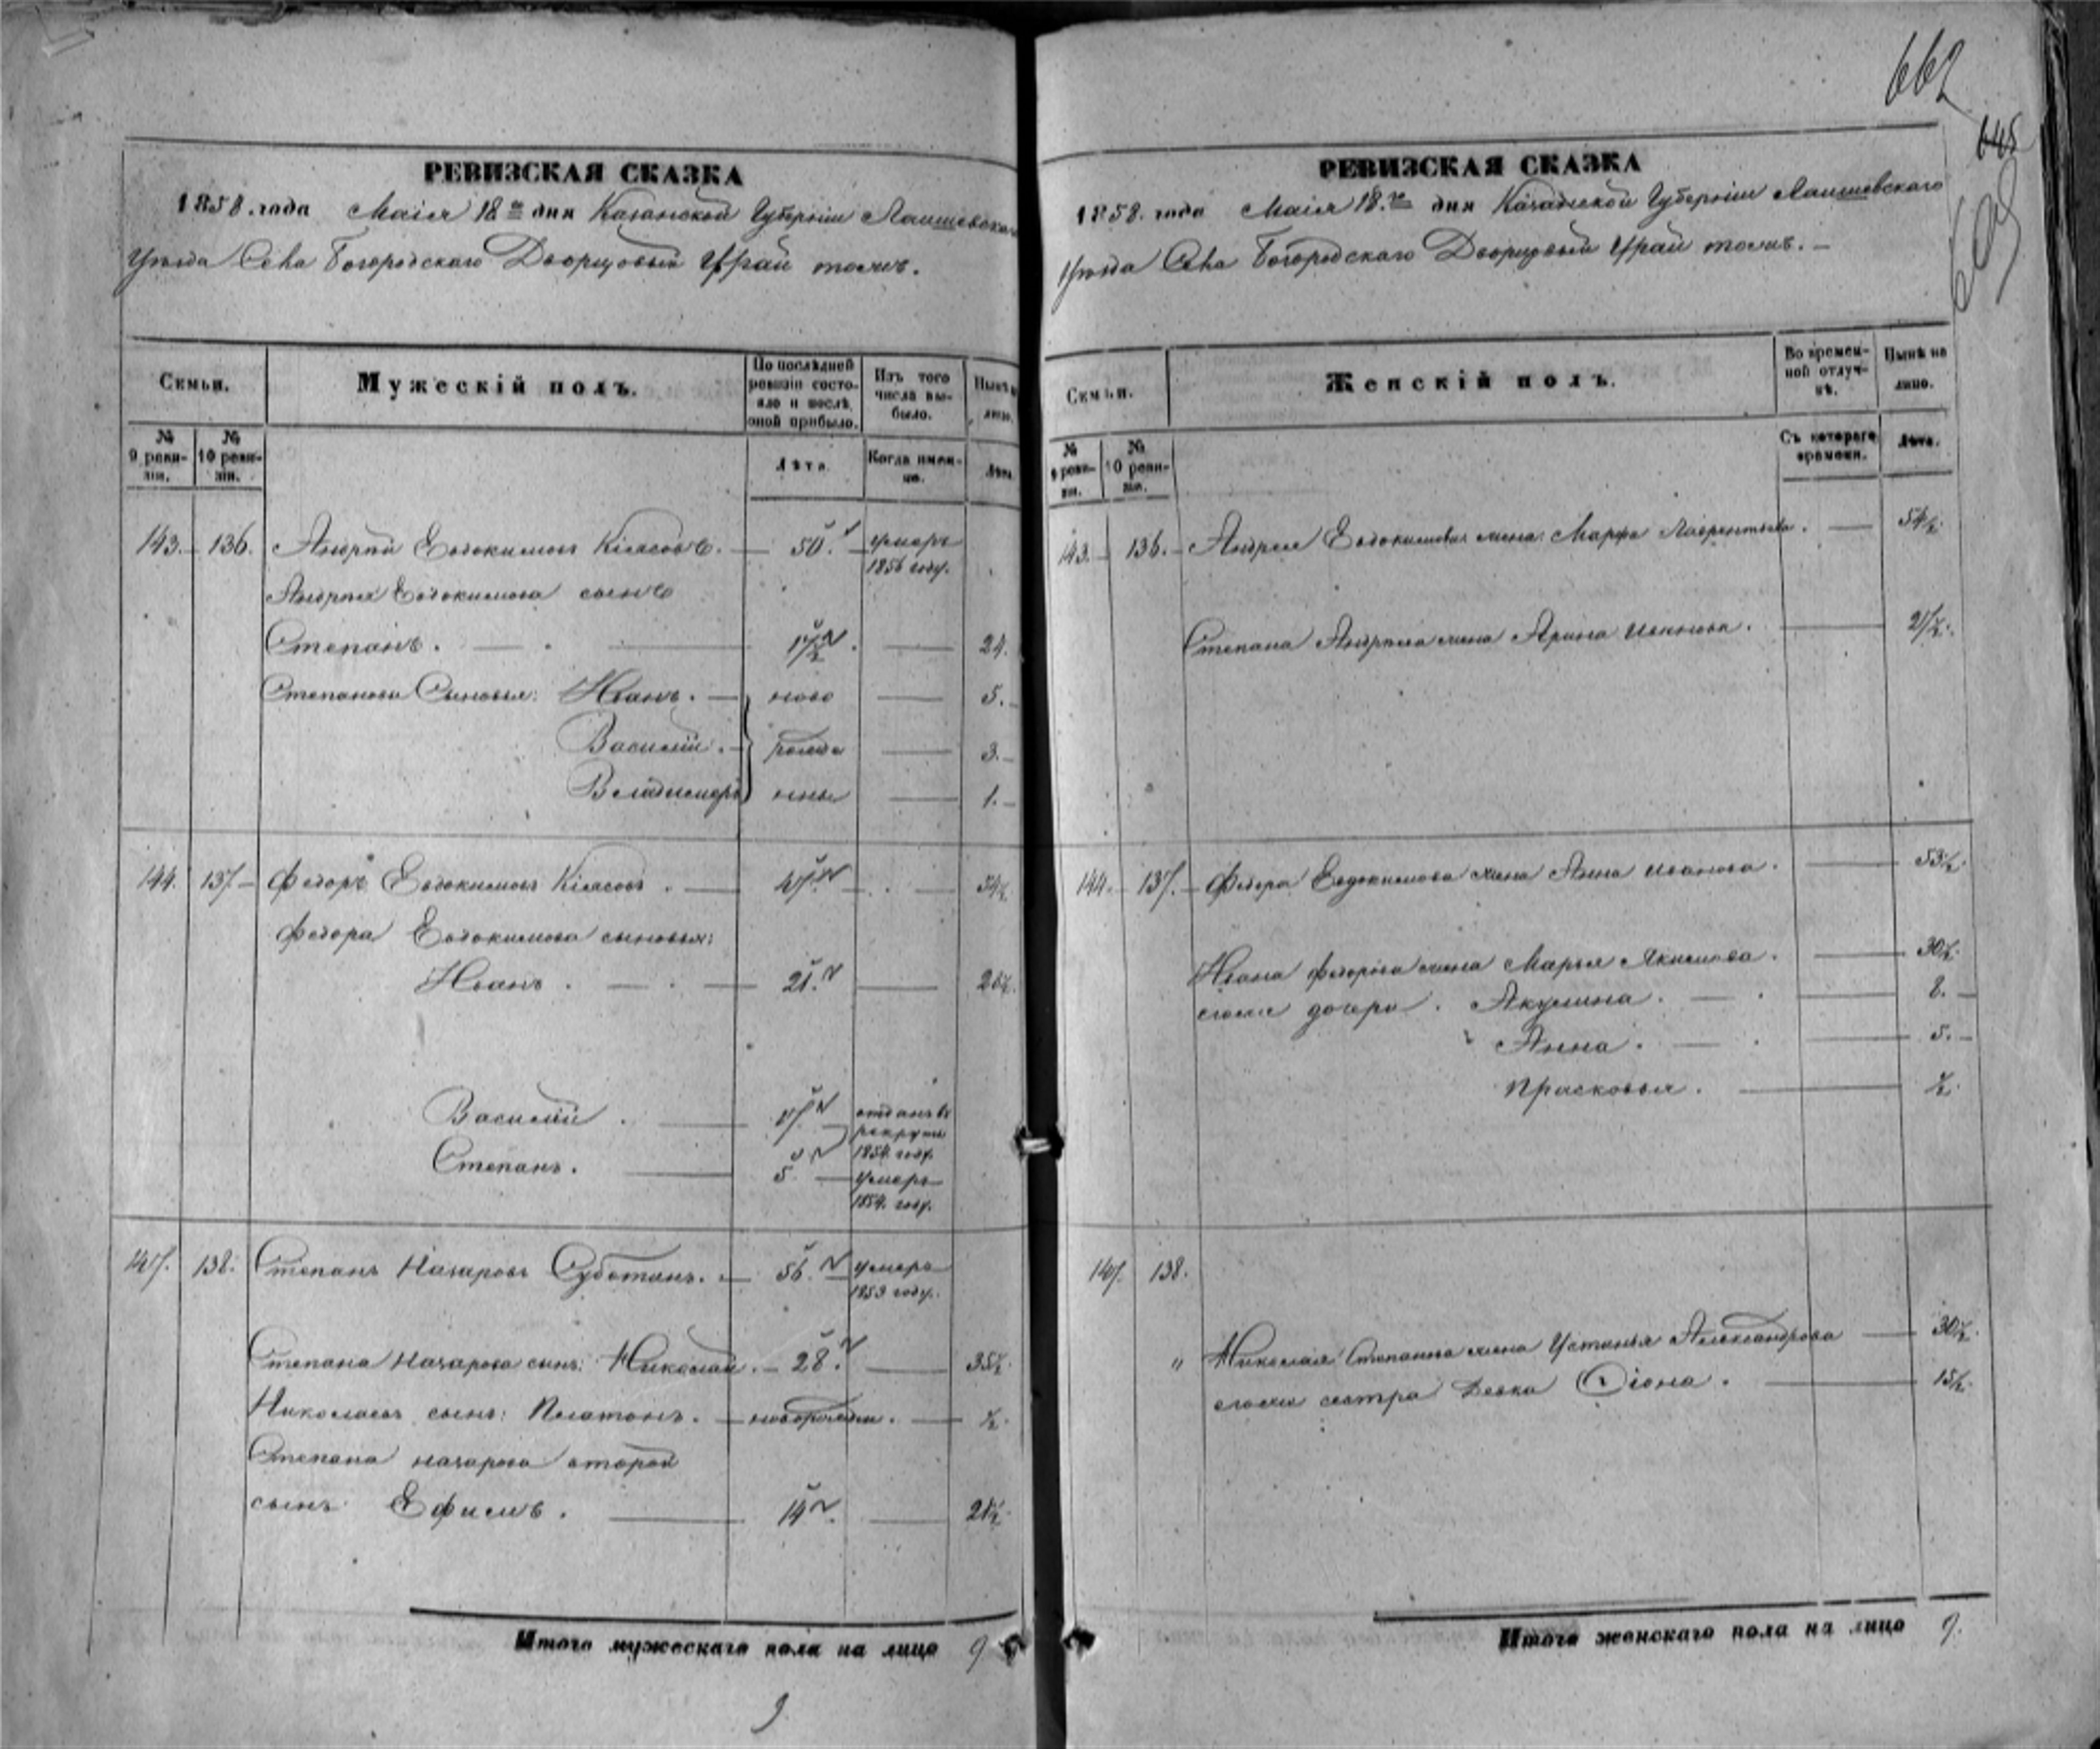 662
645
РЕВИЗСКАЯ СКАЗКА
1858. года Маія 18го дня Казанской Губерніи Лаишевскаго
Уѣзда Села Богородскаго Дворцовый Урай тожъ.
Семьи.
Мужескій полъ.
По послѣдней ревизіи состояло и послѣ оной прибыло.
Изъ того числа выбыло.
Нынѣ на лицо.
№ 9 ревизіи.
№ 10 ревизіи.
Лѣта.
Когда именно.
Лѣта
143. 136. Андрей Евдокимовъ 50. умеръ 1856 году.
Андрея Евдокимова сынъ
Степанъ. 17½ 24.
Степановы Сыновья: Иванъ. ново 5.
Василій. рожде 3.
Владимеръ нные 1.
144. 137 Федоръ Евдокимовъ 47. 54½
Федора Евдокимова сыновья:
Иванъ. 21. 28½.
Василій. 17 отданъ въ рекруты 1854 году.
Степанъ. 5. умеръ 1854. году.
147. 138. Степанъ Назаровъ Суботинъ. 56. умеръ 1853 году.
Степана Назарова сынъ: Николай. 28. 35½.
Николаевъ сынъ: Платонъ. новорожден. ½.
Степана Назарова второй
сынъ Ефимъ. 14. 21½.
Итого мужескаго пола на лицо 9
9
РЕВИЗСКАЯ СКАЗКА
1858. года Маія 18.го дня Казанской Губерніи Лаишевскаго
Уѣзда Села Богородскаго Дворцовый Урай тожъ.
Семьи.
Женскій полъ.
Во временной отлучкѣ.
Нынѣ на лицо.
№ 9 ревизіи.
№ 10 ревизіи.
Съ котораго времени.
Лѣта.
143. 136. Андрея Евдокимова жена: Марфа Лаврентьева. 54½.
Степана Андреева жена Арина Иванова. 21½.
144. 137. Федора Евдокимова жена Анна Иванова. 53½.
Ивана Федорова жена Марья Якимова. 30½.
егоже дочери. Акулина. 8.
Анна. 5.
Прасковья. ½.
147. 138.
" Николая Степанова жена Устинья Александрова 30½.
егоже сестра девка 15½.
Итого женскаго пола на лицо 9.